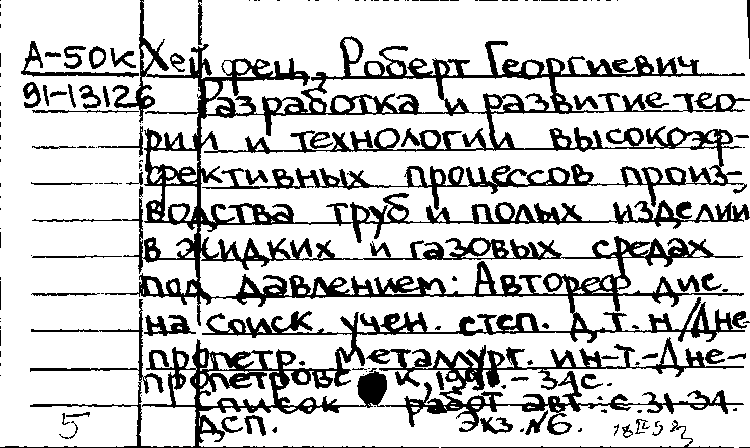 А-50к Хейфец, Роберт Георгиевич
91-13126 Разработка и развитие тео-
рии и технологии высокоэф-
фективных процессов произ-
водства труб и полых изделий
в жидких и газовых средах
под давлением: Автореф. дис.
на соиск. учен. степ. д.т.н/Дне
пропетр. металлург. ин-т.-Дне-
пропетровс к, 1991.- 34с.
Список работ авт.: с.31-34.
5 ДСП. Экз.№6.